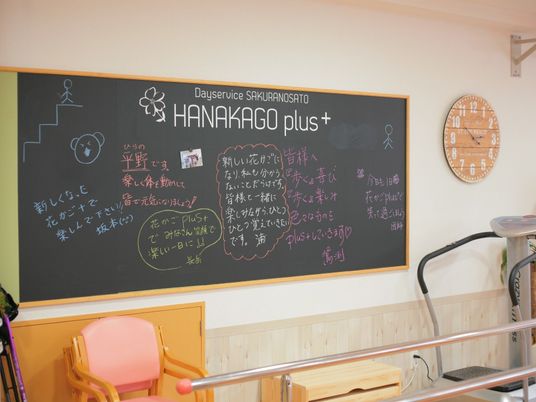 Dayservice SAKURANOSATO
HANAKAGO plus+
ひらの
平野です。
楽しく体を動かして
皆で元気になりましょう!
新しくな、た
花かご+で
楽しんで下さい!!
坂本(ご)
花かごplus+
で みなさん笑顔で
楽しい一日に
新しい花かごに
なり私も分から
ないことだらけです。
皆様と一緒に
楽しみながら、ひとつ
ひとつ覚えていきたい
です。 浦
皆様へ
歩く喜び
歩く楽しみ
色々なものを
plus+していきます♡
今日も1日
花かごplus+で
笑って過ごしましょう